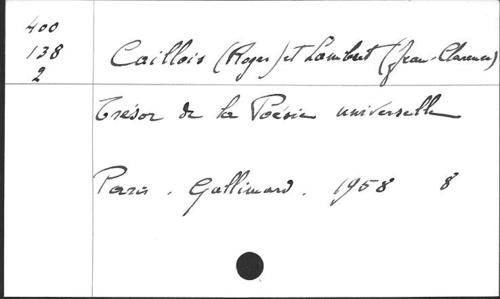 400
138
2
Caillois (Roger) et Lambert (Jean-Clarence)
Trésor de la Poésie universelle
Paris. Gallimard. 1958 8